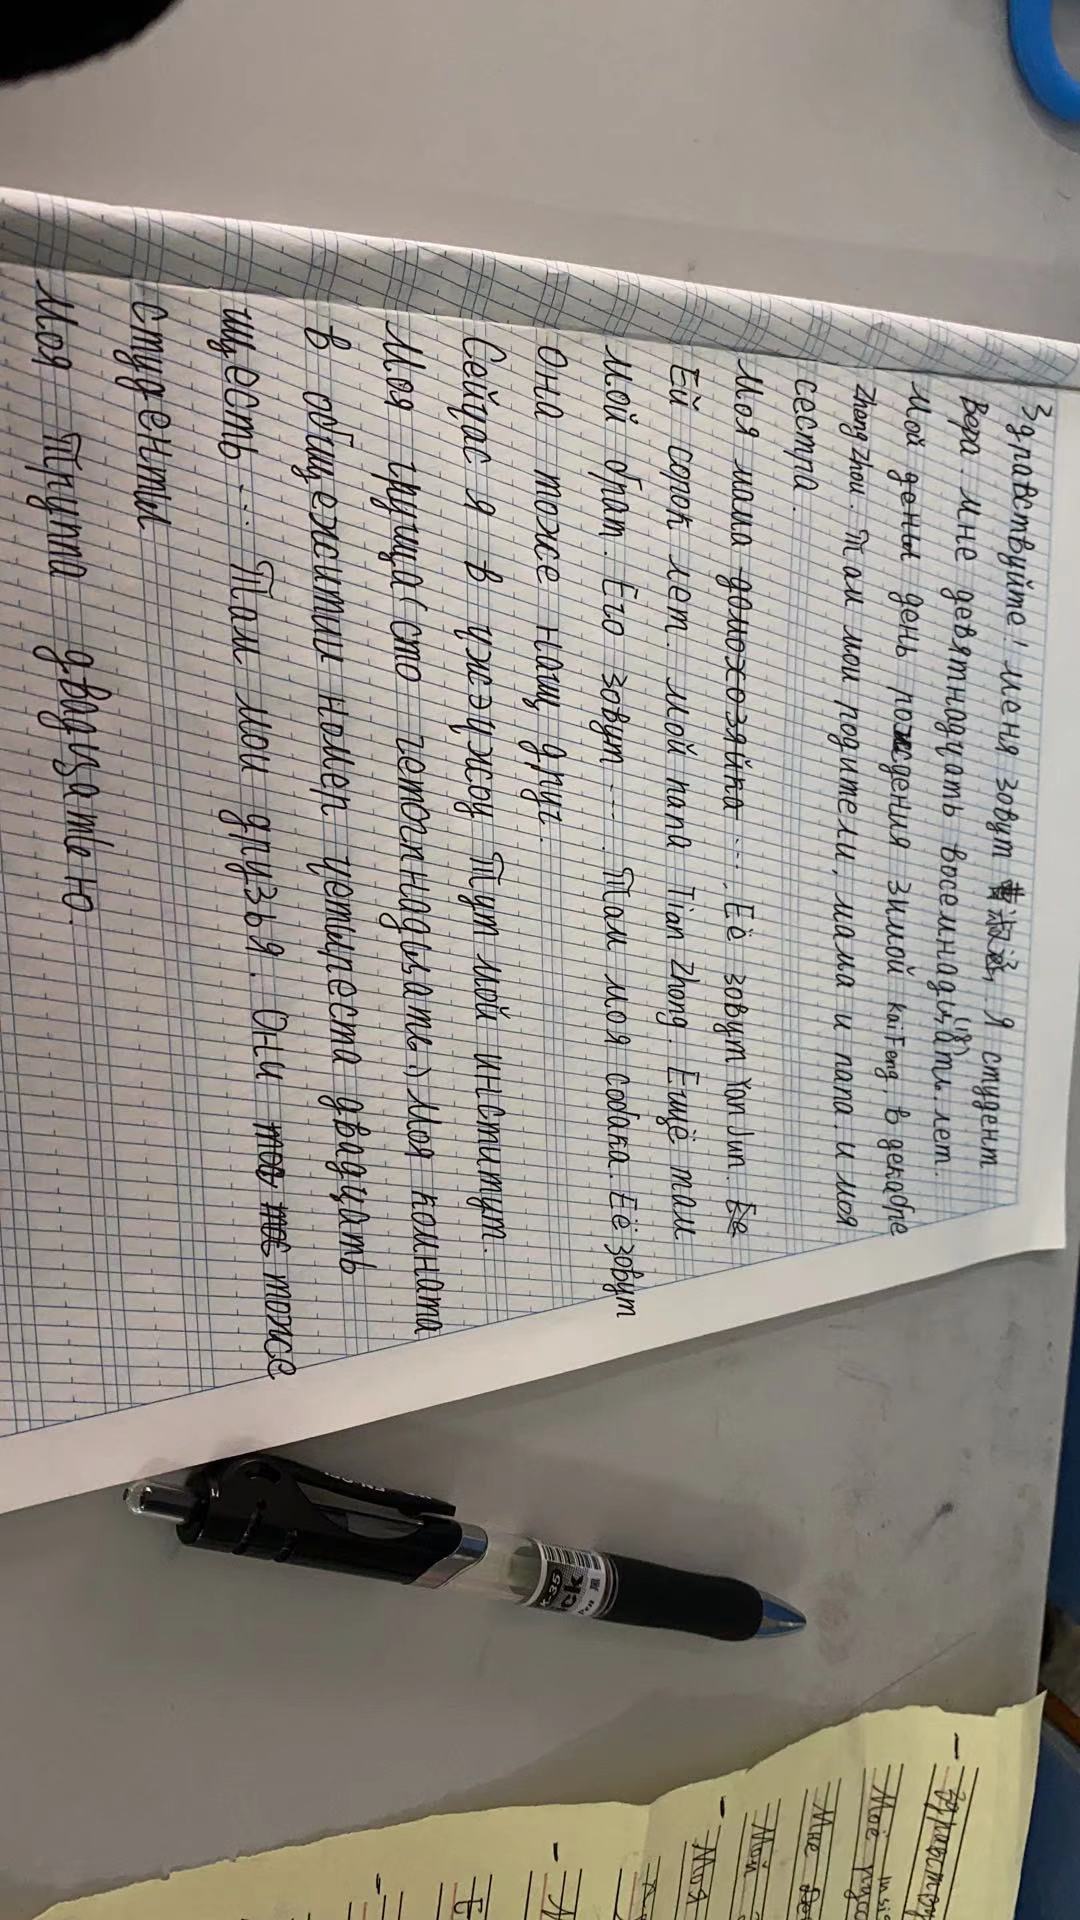 Здравствуйте! меня зовут я студент
Вера мне девятнадцать восемнадцать (18) лет.
мой день рождения зимой KaiFeng, в декабре
ZhengZhou. Там мои родители, мама и папа. и моя
сестра.
Моя мама домохозяйка .... Её зовут Yan Jun. Ее
Ей сорок лет. мой папа Tian Zhong. Ещщё там
мой брат. Его зовут .... Там моя собака. Её зовут
она тоже нащ друг.
Сейчас я в ужэнжоу Тут мой институт.
Моя группа (сто четогрнадцать) Моя комната
в общежитии номер цетыреста двадцать
щесть ... Там мои друзья. Они тоже
студенты.
Моя Группа двадцатью.
Здравствуй
Моё
Мне
Мой
Моя